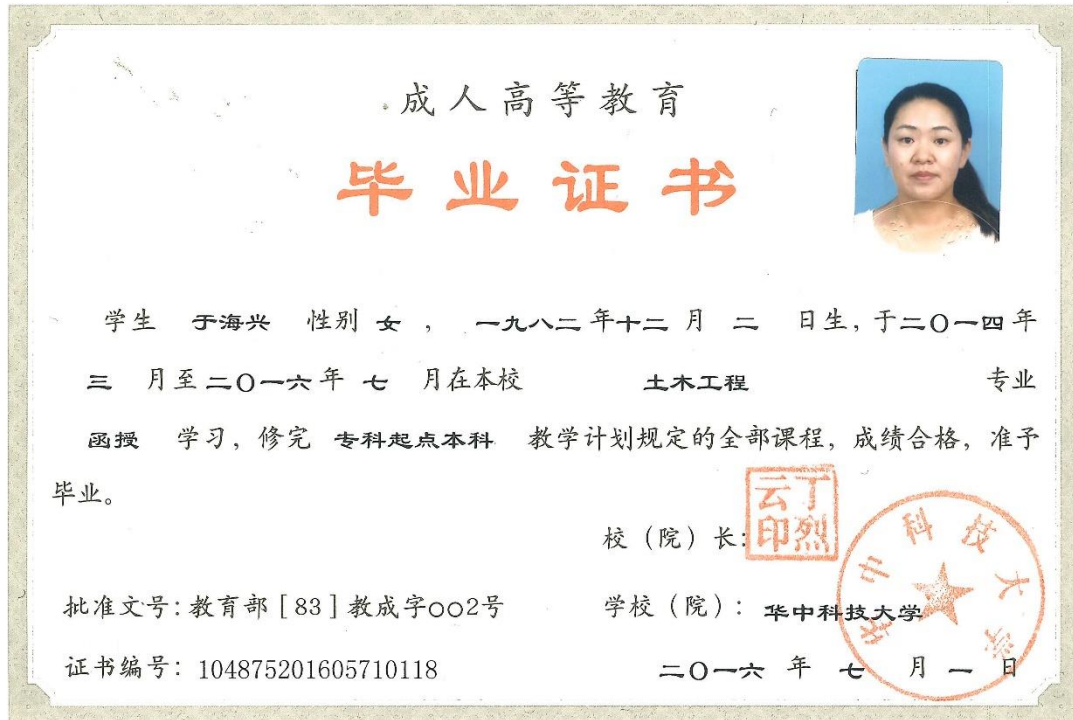 成人高等教育
毕业证书
学生 于海兴 性别 女 , 一九八二年十二月 二 日生,于二〇一四年
三 月至二〇一六年 七 月在本校 土木工程 专业
函授 学习, 修完 专科起点本科 教学计划规定的全部课程, 成绩合格, 准予
毕业。
校(院)长:
云丁
印烈
批准文号:教育部[83]教成字002号
学校(院): 华中科技大学
华中科技大学
证书编号: 104875201605710118
二〇一六 年 七 月 一 日